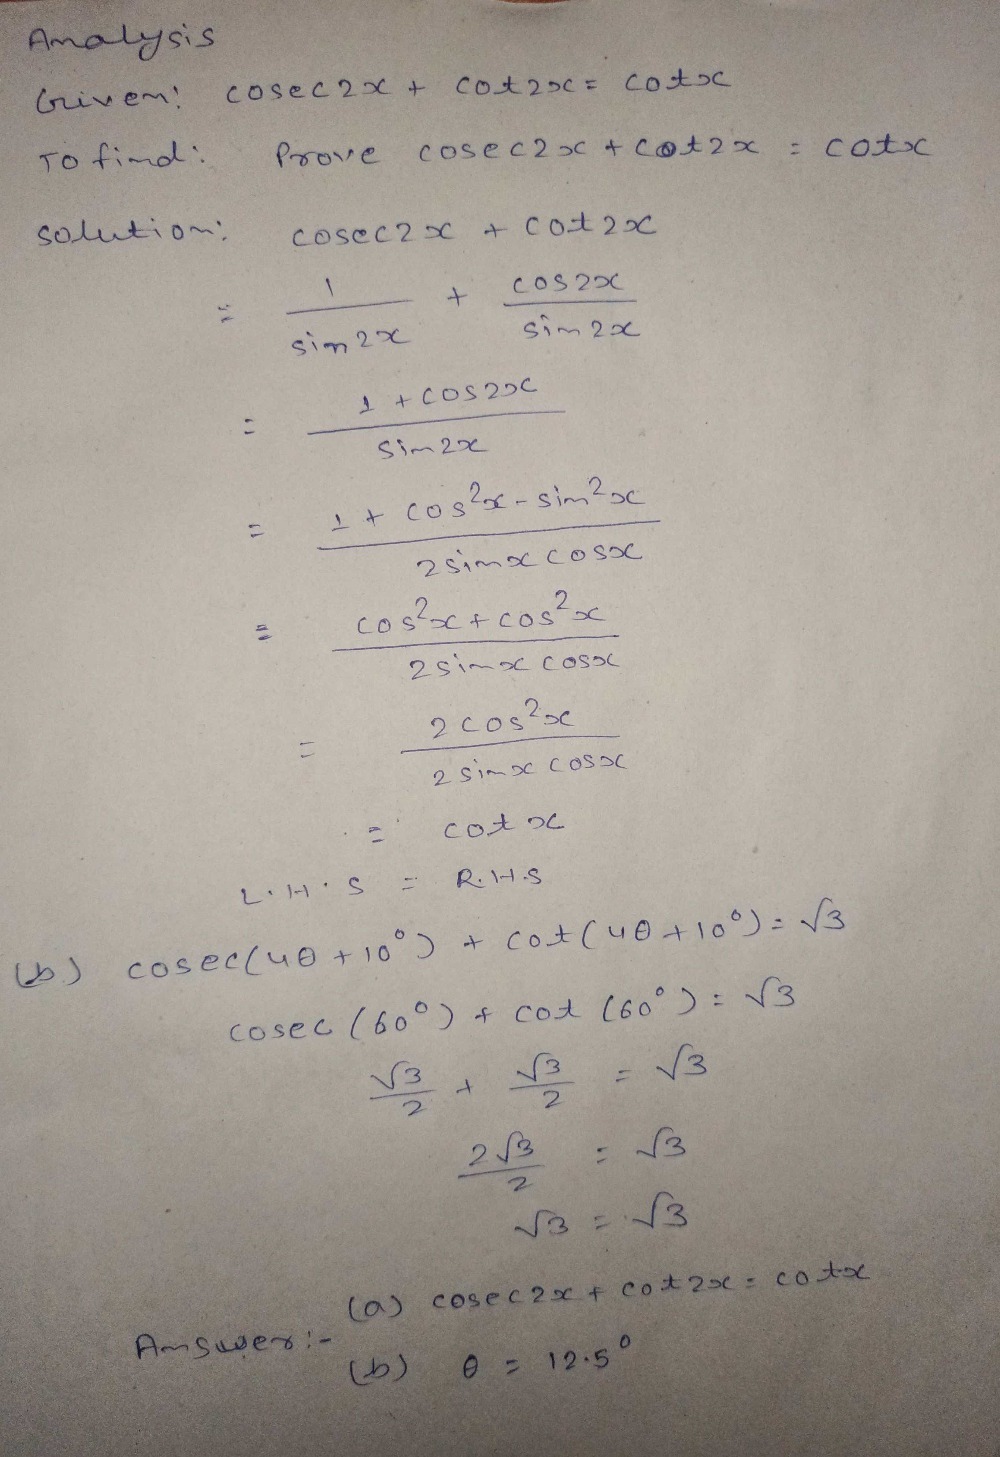 Analysis
Given: cosec2x + cot2x = cotx
To find: Prove cosec2x + cot2x = cotx
solution: cosec2x + cot2x
= 1/sin2x + cos2x/sin2x
= (1 + cos2x)/sin2x
= (1 + cos²x - sin²x)/(2sinx cosx)
= (cos²x + cos²x)/(2sinx cosx)
= 2cos²x/(2sinx cosx)
= cotx
L.H.S = R.H.S
(b) cosec(4θ + 10°) + cot(4θ + 10°) = √3
cosec(60°) + cot(60°) = √3
√3/2 + √3/2 = √3
2√3/2 = √3
√3 = √3
(a) cosec2x + cot2x = cotx
Answer:-
(b) θ = 12.5°